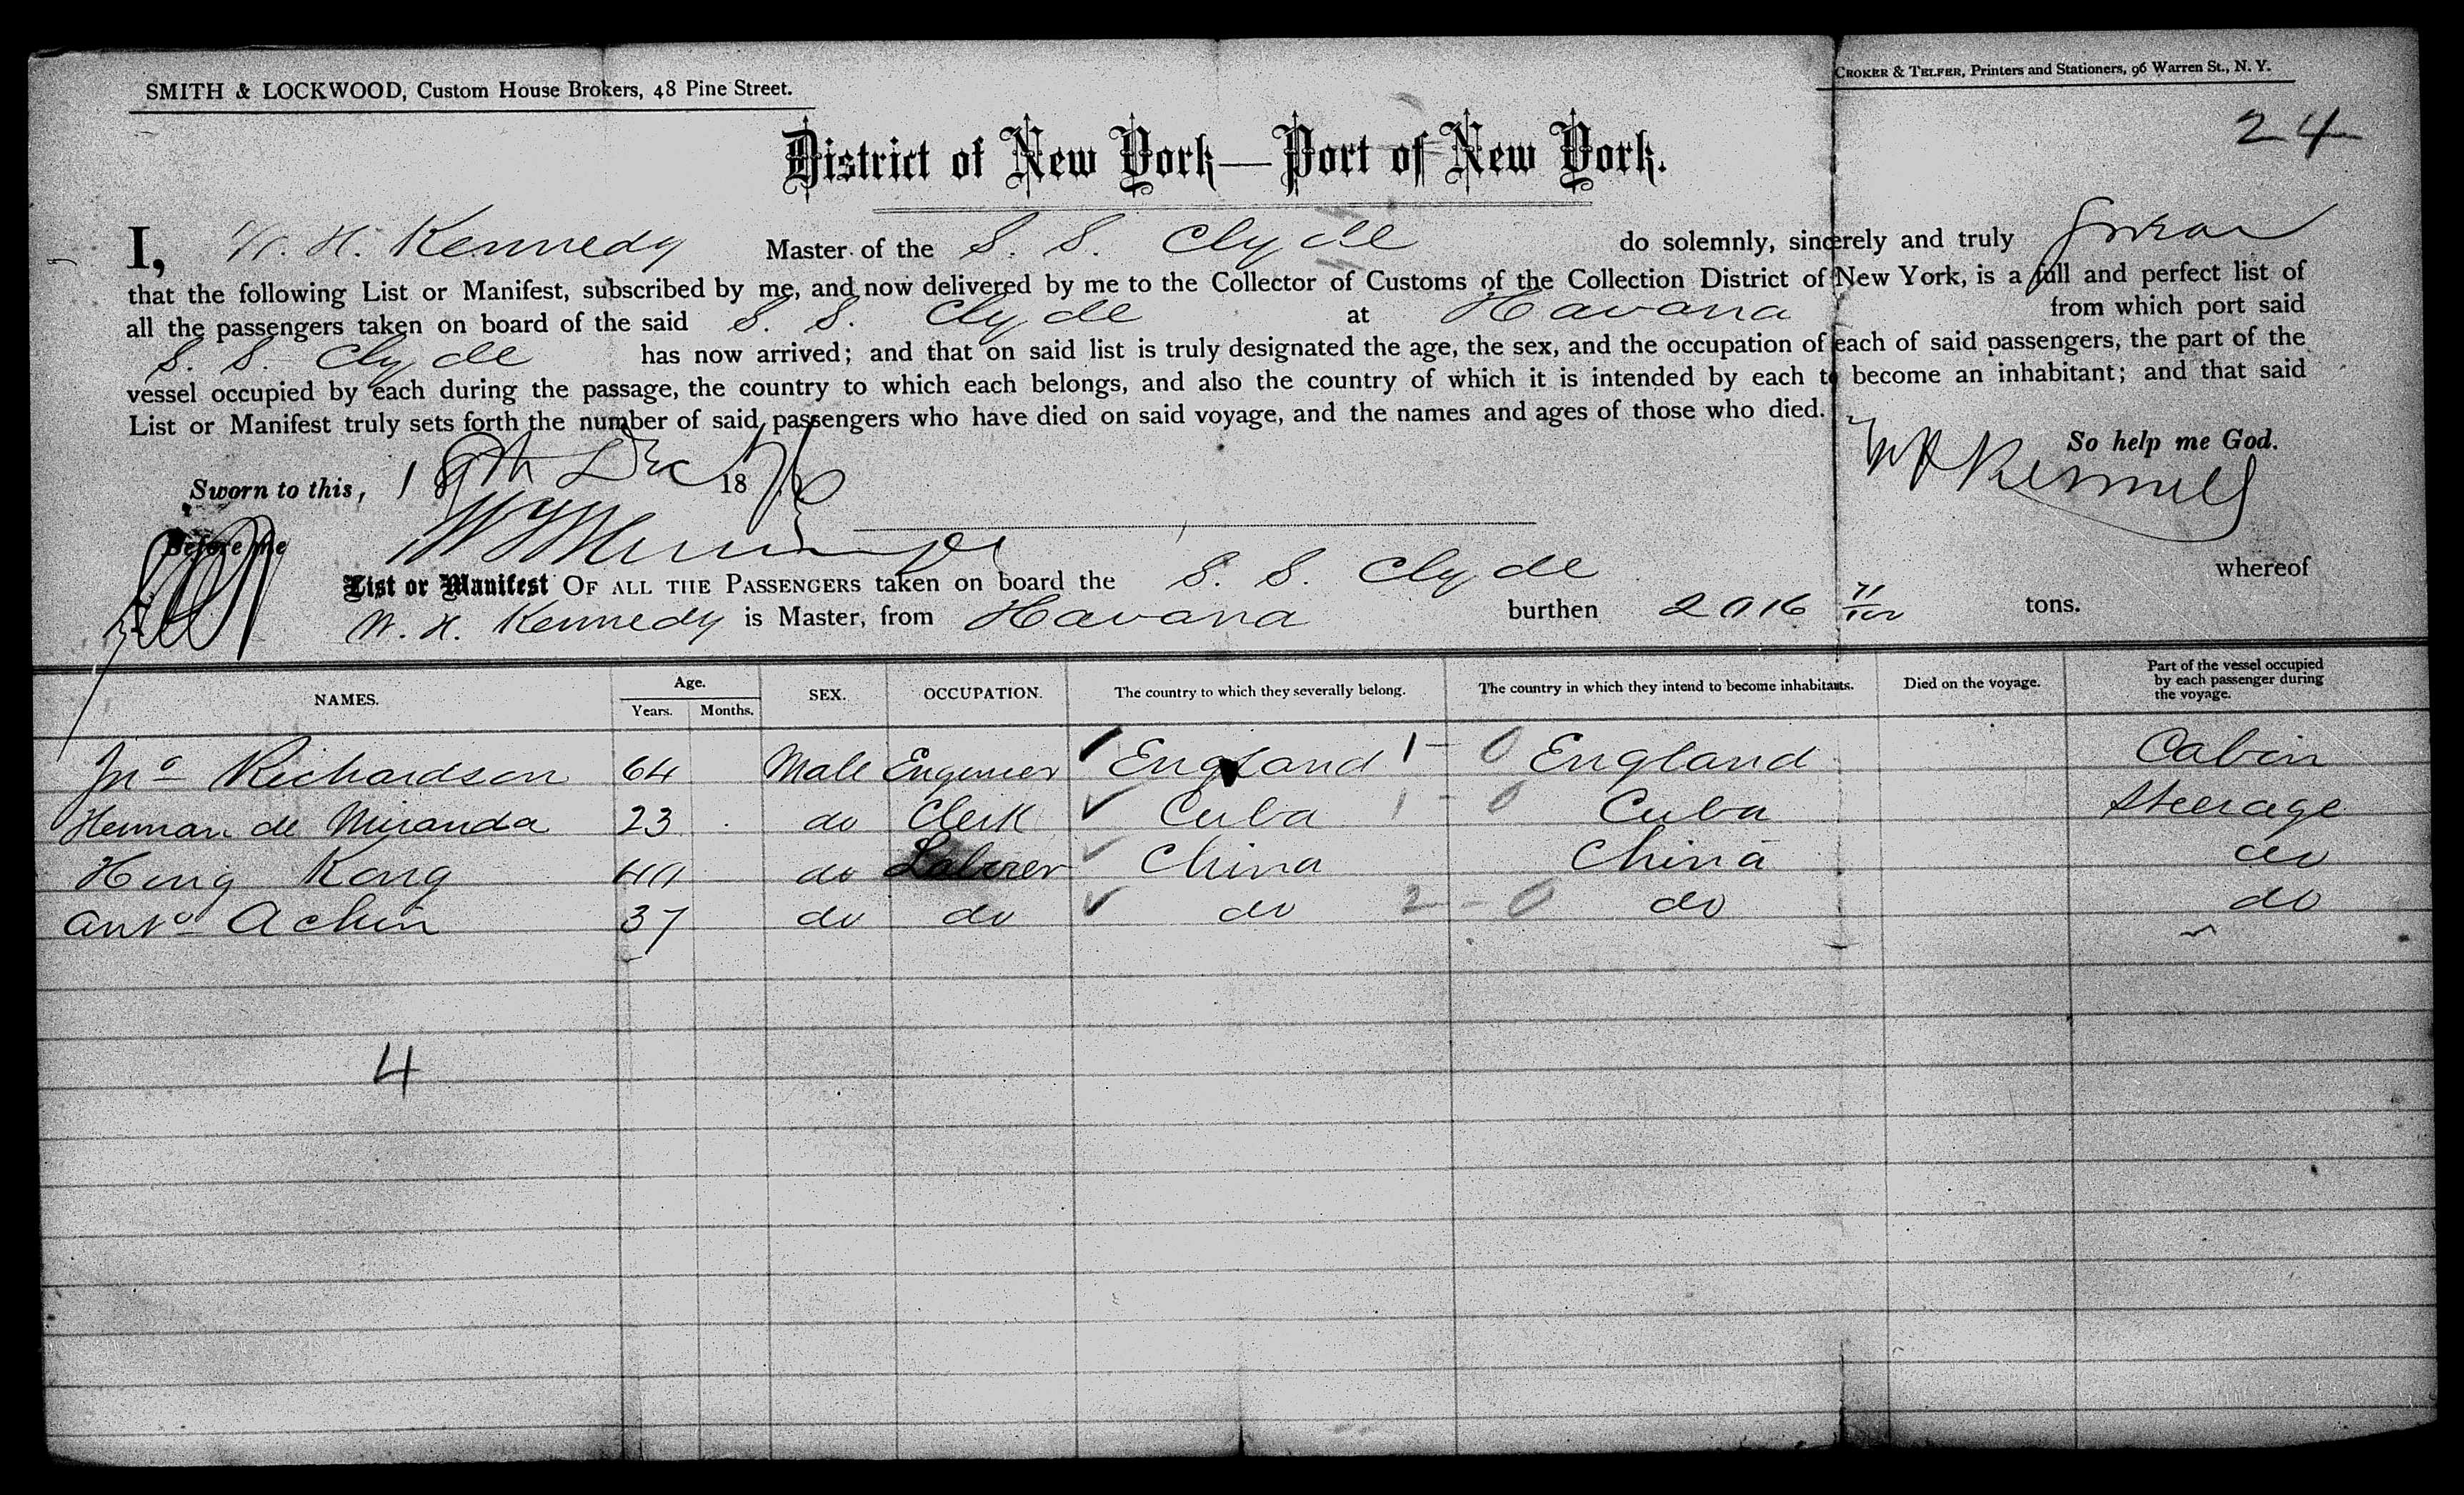 SMITH & LOCKWOOD, Custom House Brokers, 48 Pine Street.
CROKER & TELFER, Printers and Stationers, 96 Warren St., N. Y.
24
District of New York—Port of New York.
I, W. H. Kennedy Master of the S. S. Clyde do solemnly, sincerely and truly swear
that the following List or Manifest, subscribed by me, and now delivered by me to the Collector of Customs of the Collection District of New York, is a full and perfect list of
all the passengers taken on board of the said S. S. Clyde at Havana from which port said
S. S. Clyde has now arrived; and that on said list is truly designated the age, the sex, and the occupation of each of said passengers, the part of the
vessel occupied by each during the passage, the country to which each belongs, and also the country of which it is intended by each to become an inhabitant; and that said
List or Manifest truly sets forth the number of said passengers who have died on said voyage, and the names and ages of those who died.
So help me God.
Sworn to this, 18th Dec 1876
W H Kennedy
Before me
List or Manifest OF ALL THE PASSENGERS taken on board the S. S. Clyde whereof
W. H. Kennedy is Master, from Havana burthen tons.
NAMES. Age. Years. Months. SEX. OCCUPATION. The country to which they severally belong. The country in which they intend to become inhabitants. Died on the voyage. Part of the vessel occupied by each passenger during the voyage.
Jno Richardson 64 Male Engineer England 1 - 0 England Cabin
Hernan de Miranda 23 do Clerk Cuba 1 - 0 Cuba Steerage
Hong Kong do Laborer China China do
Anto Achin 37 do do do 2 - 0 do do
4